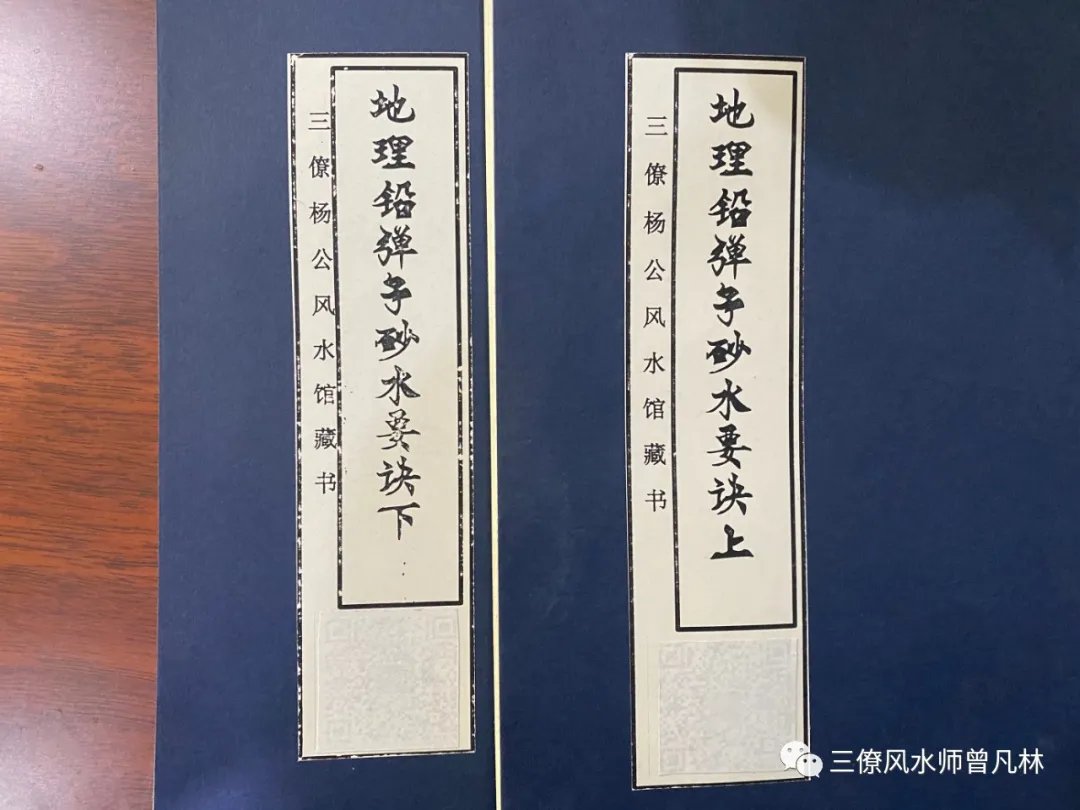 地理铅弹子砂水要诀上
三僚杨公风水馆藏书
地理铅弹子砂水要诀下
三僚杨公风水馆藏书
三僚风水师曾凡林